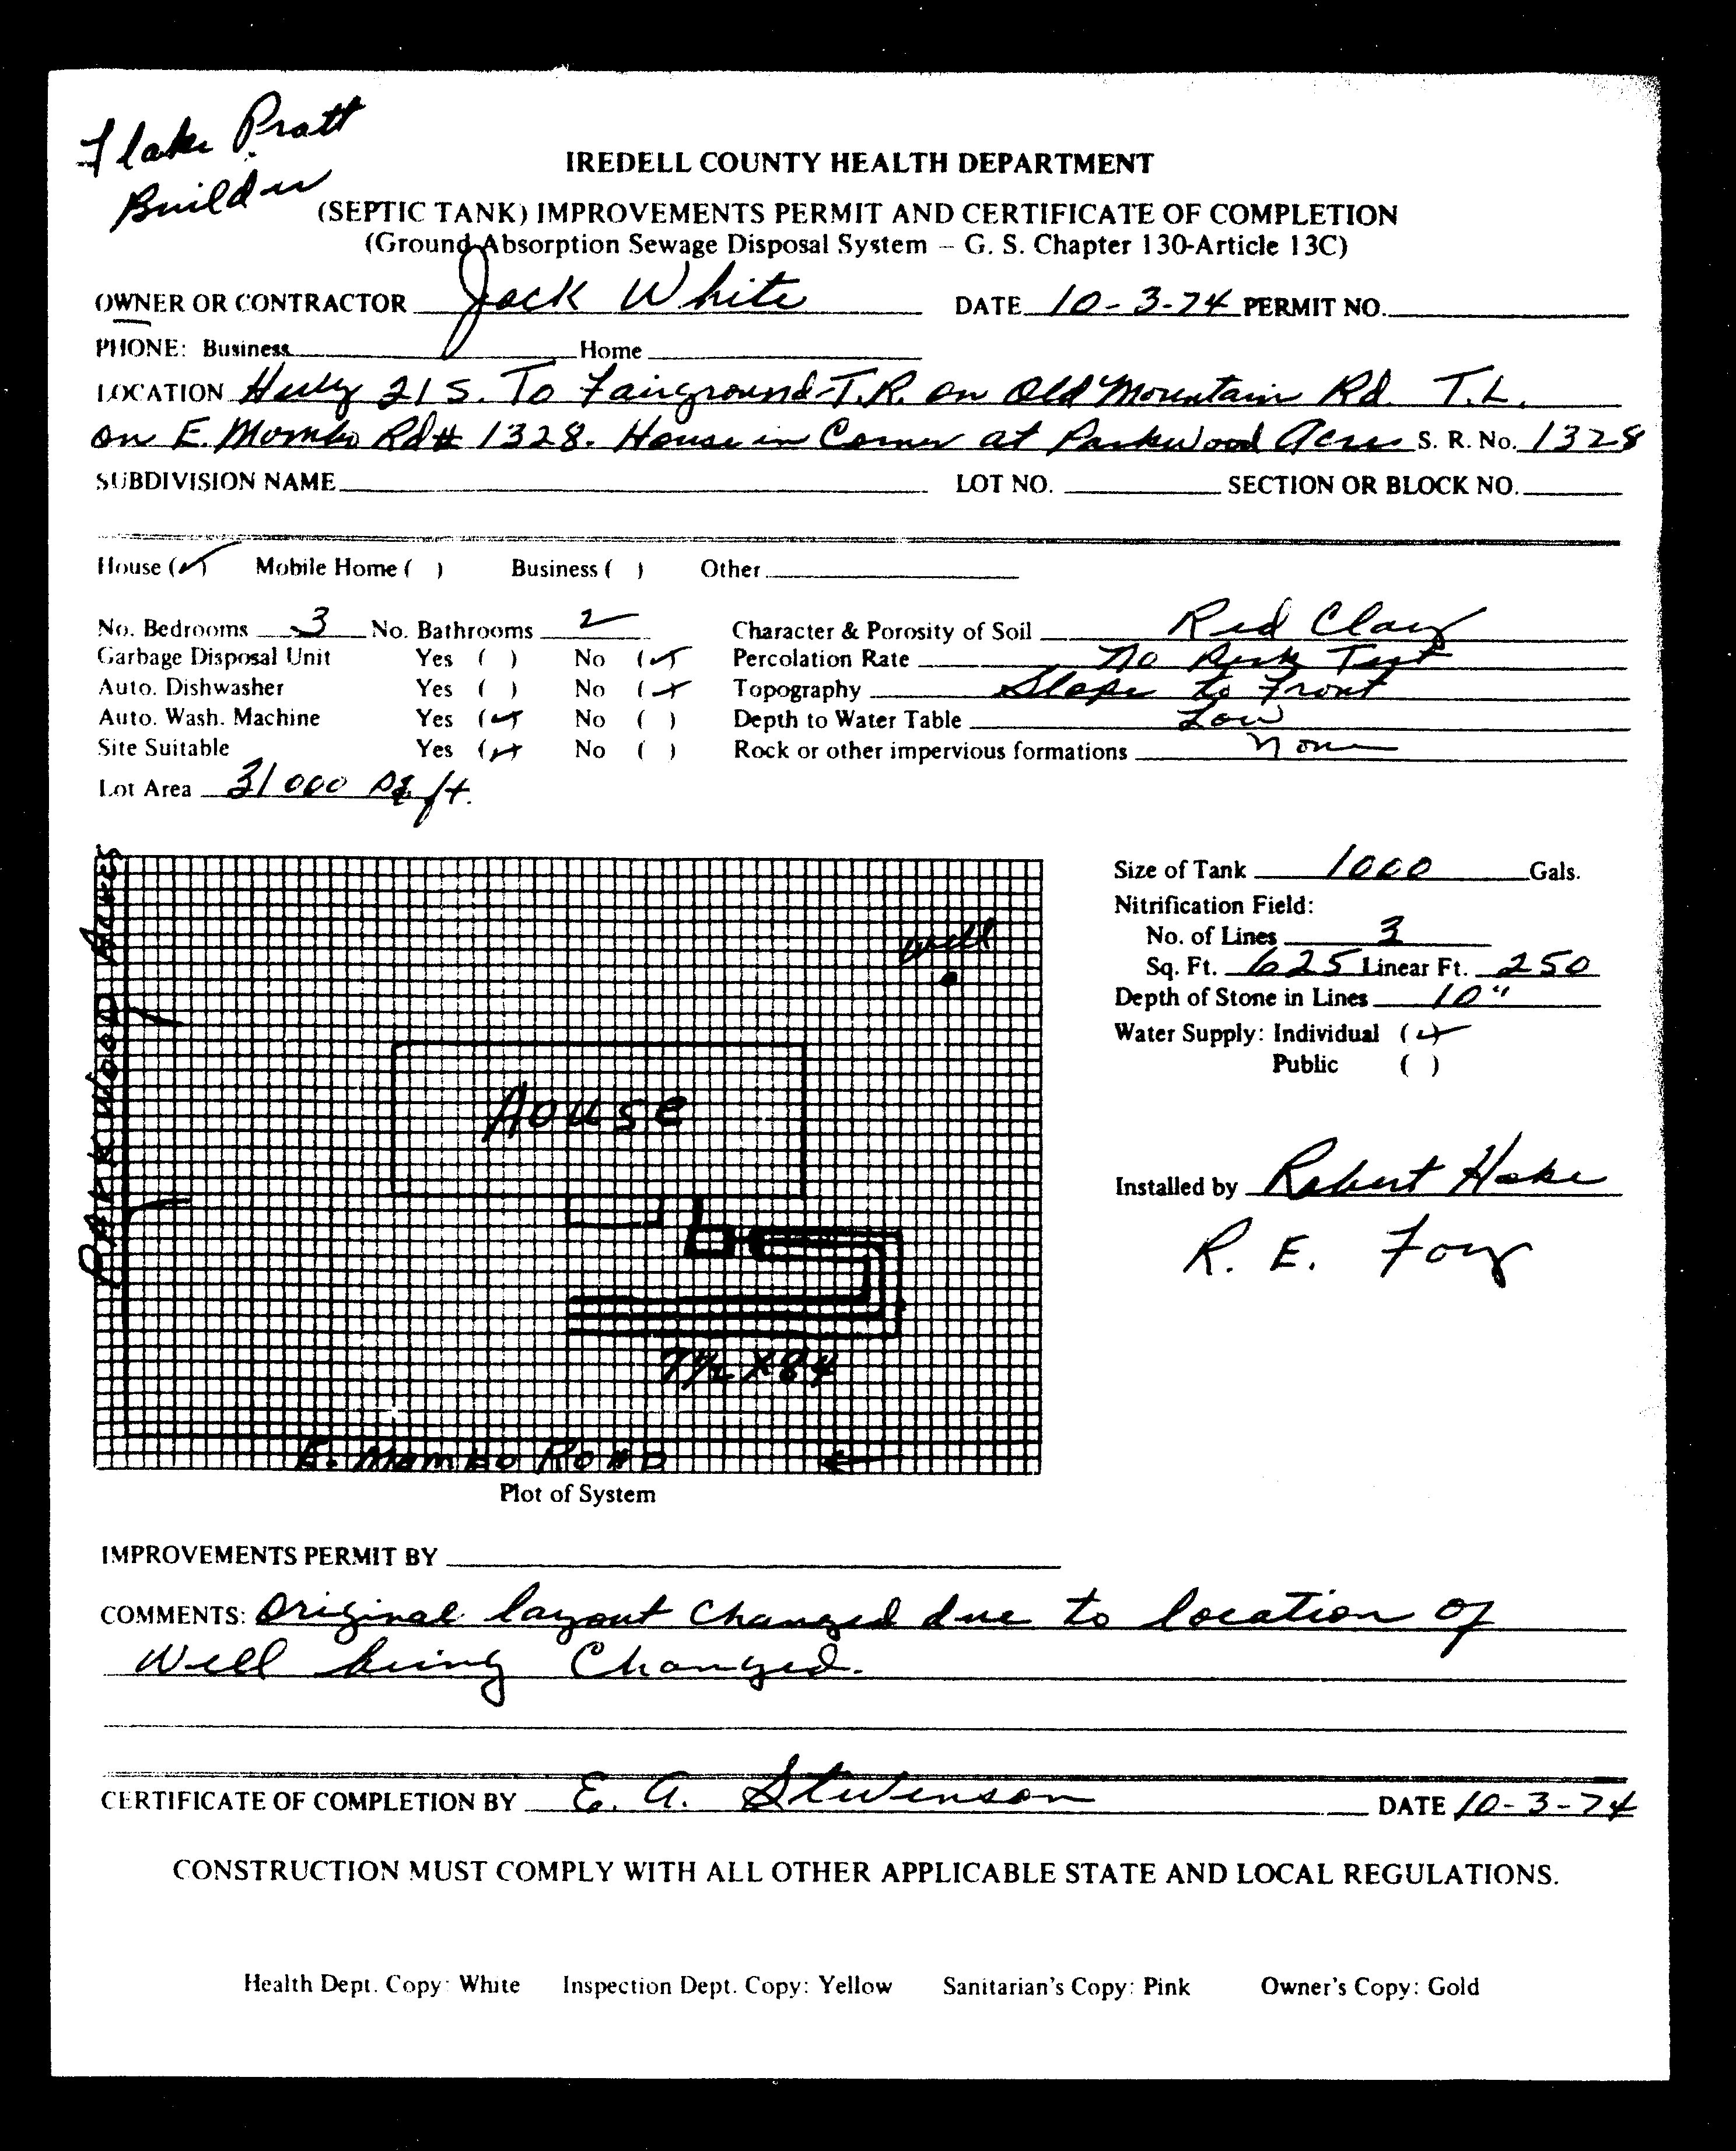 Flake Pratt
Builder
IREDELL COUNTY HEALTH DEPARTMENT
(SEPTIC TANK) IMPROVEMENTS PERMIT AND CERTIFICATE OF COMPLETION
(Ground Absorption Sewage Disposal System – G. S. Chapter 130-Article 13C)
OWNER OR CONTRACTOR Jack White DATE 10-3-74 PERMIT NO.
PHONE: Business Home
LOCATION Hwy 21 S. To Fairground-T.R. on Old Mountain Rd. T.L.
on E. Mombo Rd# 1328. House in Corner at Parkwood Acres S. R. No. 1328
SUBDIVISION NAME LOT NO. SECTION OR BLOCK NO.
House (✓) Mobile Home ( ) Business ( ) Other
No. Bedrooms 3 No. Bathrooms 2 Character & Porosity of Soil Red Clay
Garbage Disposal Unit Yes ( ) No (✓) Percolation Rate No Perk Test
Auto. Dishwasher Yes ( ) No (✓) Topography Slope to Front
Auto. Wash. Machine Yes (✓) No ( ) Depth to Water Table Low
Site Suitable Yes (✓) No ( ) Rock or other impervious formations None
Lot Area 31000 sq. ft.
PARKWOOD ACRES
well
House
7½ X 84
E. Mombo ROAD
Plot of System
Size of Tank 1000 Gals.
Nitrification Field:
No. of Lines 3
Sq. Ft. 625 Linear Ft. 250
Depth of Stone in Lines 10"
Water Supply: Individual (✓)
Public ( )
Installed by Robert Hoke
R. E. Foy
IMPROVEMENTS PERMIT BY
COMMENTS: Original layout changed due to location of
Well being Changed.
CERTIFICATE OF COMPLETION BY E. A. Stevenson DATE 10-3-74
CONSTRUCTION MUST COMPLY WITH ALL OTHER APPLICABLE STATE AND LOCAL REGULATIONS.
Health Dept. Copy: White Inspection Dept. Copy: Yellow Sanitarian's Copy: Pink Owner's Copy: Gold